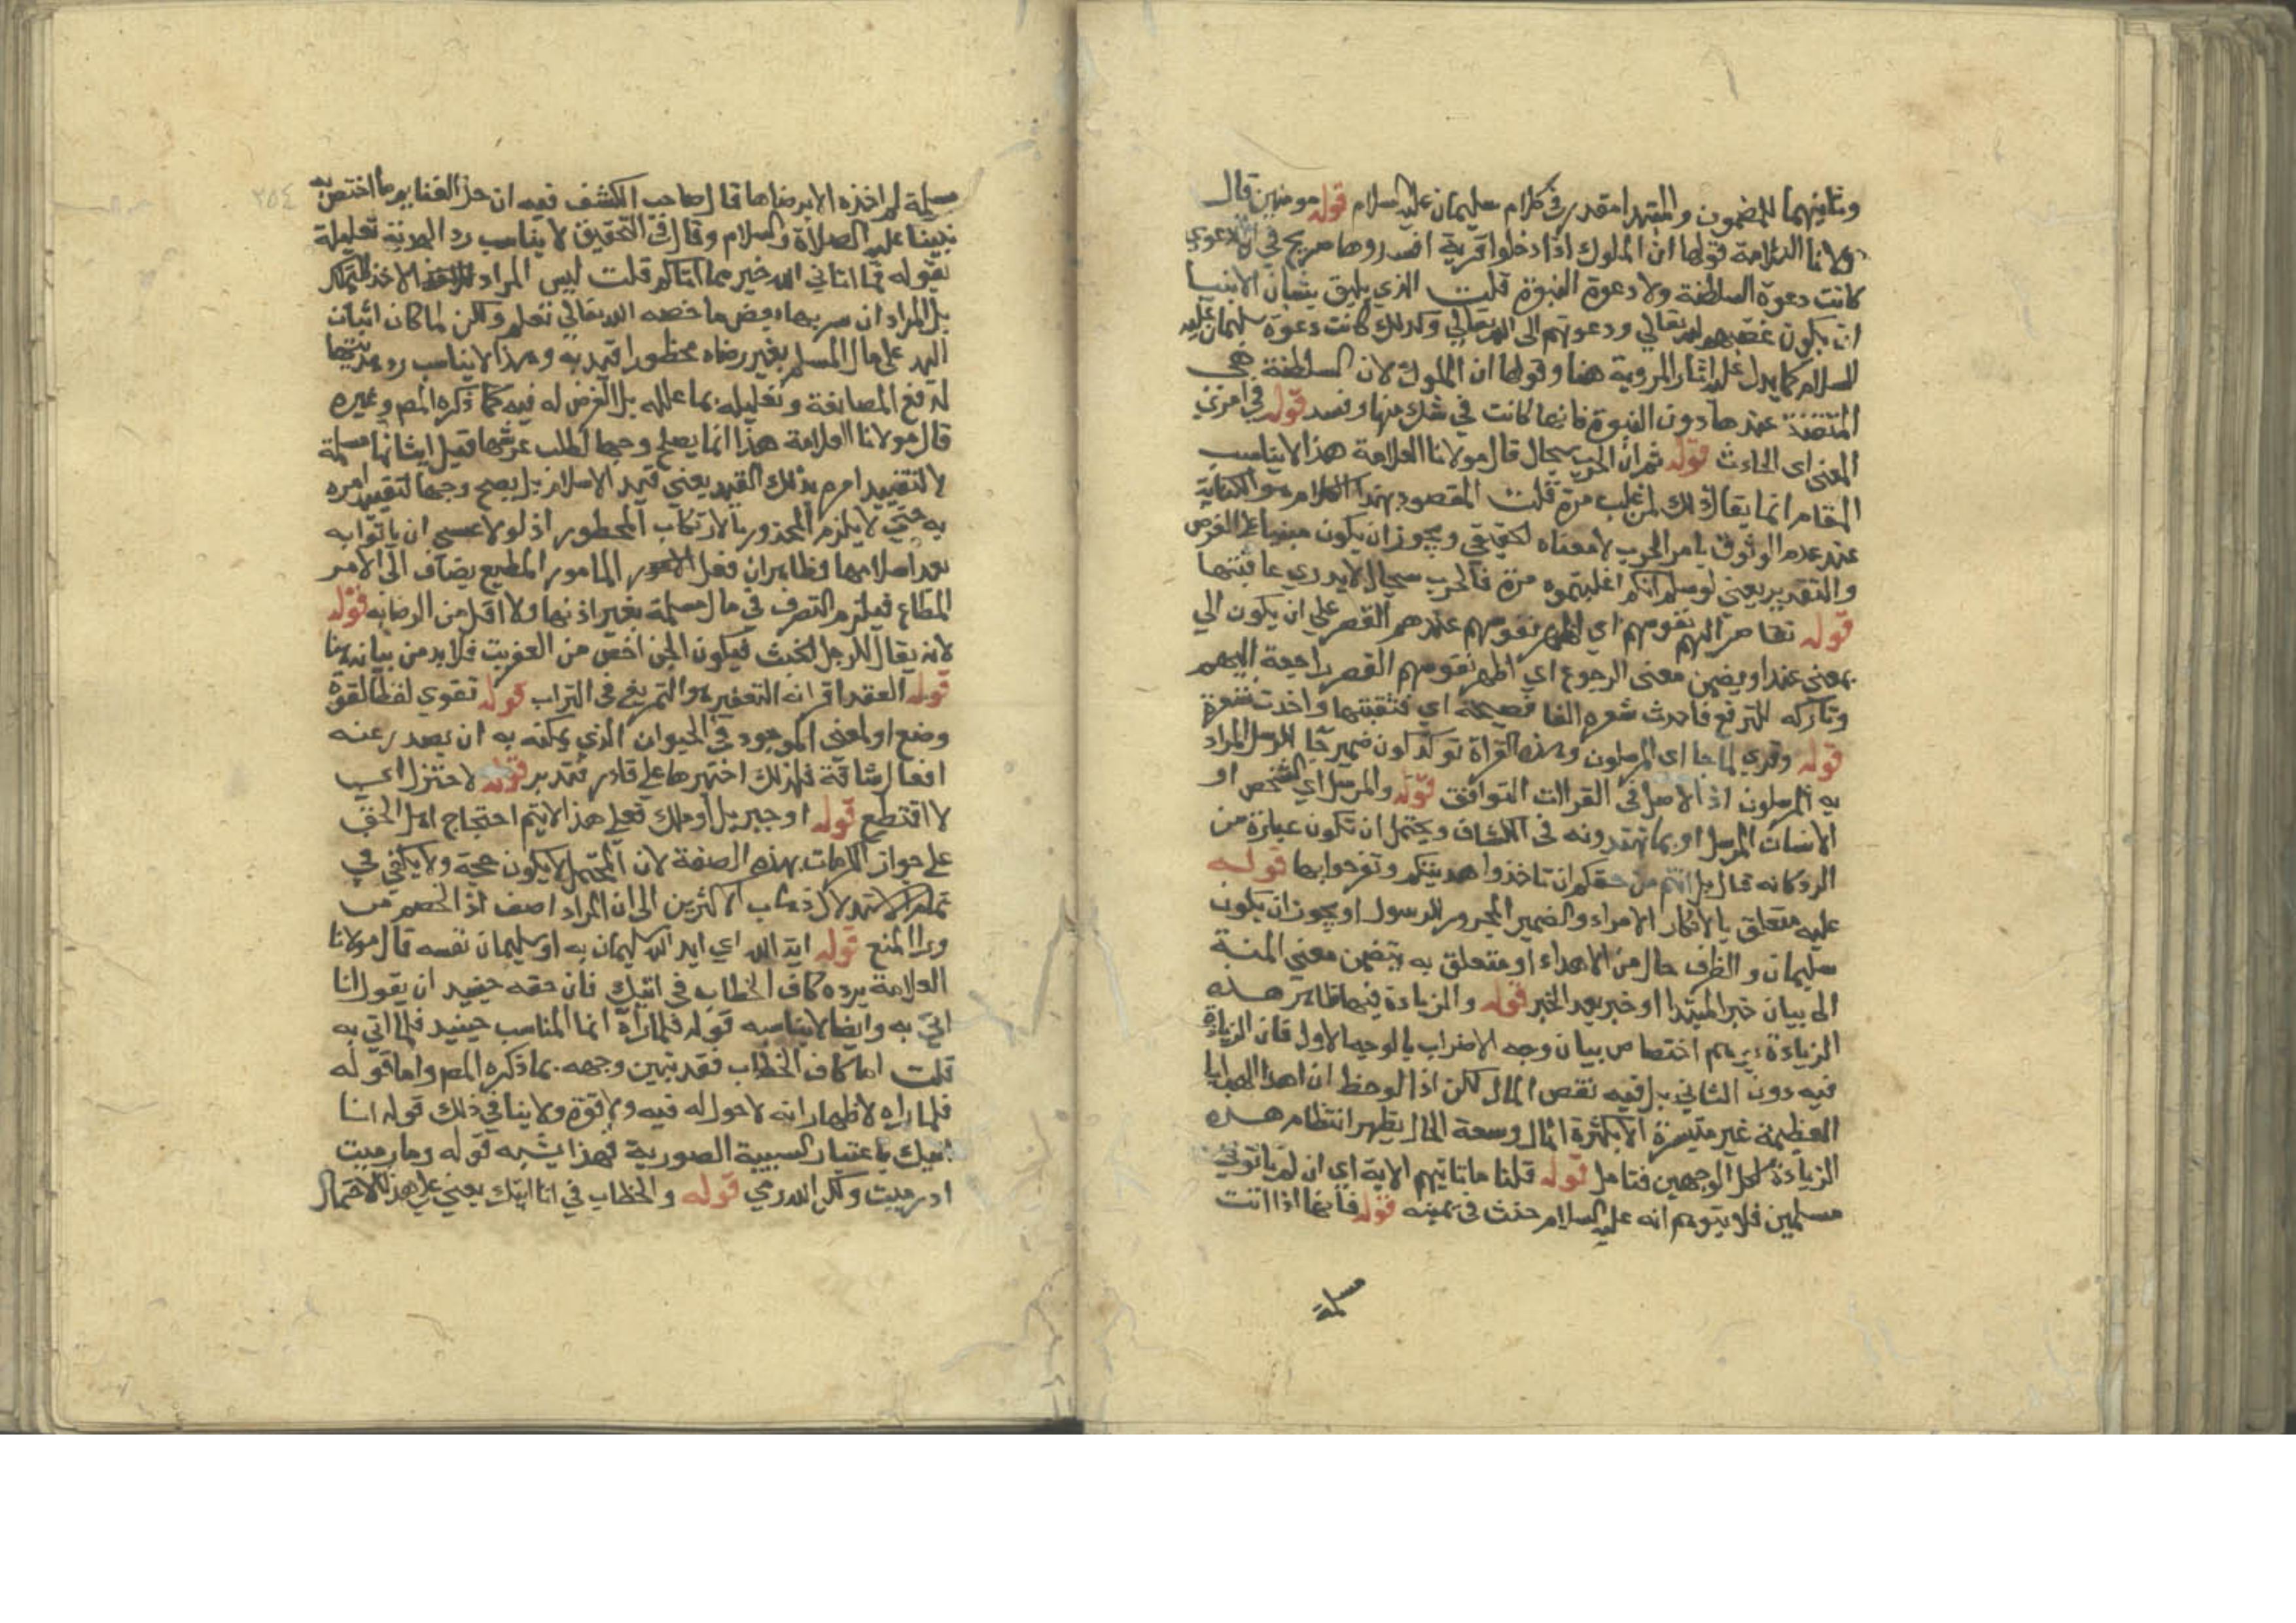 وثانيهما للمضمون والمبتدا مقدر في كلام سليمان عليه السلام قوله مومنين قال
مولانا العلامة قولها ان الملوك اذا دخلوا قرية افسدوها صريح في ان دعوى
كانت دعوة السلطنة ولا دعوة النبوة قلت الذي يليق بشان الانبيا
ان يكون غضبهم لله تعالي ودعوتهم الى الله تعالي وكذلك كانت دعوة سليمان عليه
السلام كما يدل عليه اثار المروية هنا وقولها ان الملوك لان السلطنة هي
عندها دون النبوة فانها كانت في شك منها وفسد قوله في امري
المعنى اى الحادث قوله ثم ان الحرب سجال قال مولانا العلامة هذا لا يناسب
المقام انما يقال ذلك لمن غلب مرة قلت المقصود بهذا الكلام هو الكناية
عند عدم الوثوق بامر الحرب لا معناه الحقيقي ويجوز ان يكون مبنيا على الفرض
والتقدير يعني لو سلم انكم اغلبتموه مرة فالحرب سجال لا يدري عاقبتها
قوله تقاصر اليهم نفوسهم اي اظهر نفوسهم عندهم القصر على ان يكون الي
بمعنى عند او بضمن معنى الرجوع اي اظهر نفوسهم القصر راجعة اليهم
قوله وقري لما جا اى المرسلون وهذه القراة توكد كون ضمير جا للرسل المراد
به المرسلون اذ الاصل في القرآات التوافق قوله والمرسل اي الشخص او
الانسان المرسل او بما تهتدونه في الكشاف ويحتمل ان تكون عبارة من
الرد كانه قال بل انتم من حقكم ان تاخذوا هديتكم وتفرحوا بها قوله
عليه متعلق بالانكار الامراء والضمير المجرور للرسول او يجوز ان يكون
سليمان والظرف حال من الاهداء او متعلق به بتضمن معنى المنة
الى بيان خبر المبتدا او خبر بعد الخبر قوله والزيادة فيهما ظاهر هذه
الزيادة يوهم اختصاص بيان وجه الاضراب بالوجه الاول فان الزيادة
فيه دون الثاني بل فيه نقص المال لكن اذا لوحظ ان اهدا الهدايا
العظيمة غير متيسرة الا بكثرة المال وسعة الحال يظهر انتظام هذه
الزيادة لكل الوجهين فتامل قوله قلنا ماتاتيهم الاية اي ان لم ياتوني
مسلمين فلا يتوهم انه عليه السلام حنث في يمينه قوله فانها اذا اتت
مسلمة
٢٥٤
مسلمة لم اخذه الا برضاها قال صاحب الكشف فيه ان حل الغنايم مما اختص به
نبينا عليه الصلاة والسلام وقال في التحقيق لا يناسب رد الهدية تعليله
بقوله فما اتاني الله خير مما اتاكم قلت ليس المراد الاخذ للتملك
بل المراد ان يريها بعض ما خصه الله تعالي تعلم ولكن لما كان اثبات
اليد على مال المسلم بغير رضاه محظورا قيد به وهذا لا يناسب رد هديتها
لدفع المصانعة وتعليله بما علله بل الغرض له فيه كما ذكره المص وغيره
قال مولانا العلامة هذا انما يصلح وجها لطلب عرشها قبل اتيانها مسلمة
لا لتقييد امره بذلك القيد يعني قيد الاسلام بل يصح وجها لتقييد امره
به حتي لا يلزم المحذور بالارتكاب المحظور اذ لولا عسي ان ياتوا به
بعد اسلامها وظاهر ان فعل المامور المطيع يضاف الى الامر
المطاع فيلزم التصرف في مال مسلمة بغير اذنها ولا اقل من الرضا به قوله
لانه يقال للرجل الخبث فيكون الجن اخص من العفريت فلا بد من بيانه بها
قوله العقد اقرانه التعفير والتمريغ في التراب قوله تقوي لفظ القوة
وضع اولمعنى الموجود في الحيوان الذي يمكنه به ان يصدر عنه
افعال شاقة فلذلك اختيرها على قادر فتدبر قوله لا اختزل اي
لا اقتطع قوله او جبريل او ملك فعلى هذا لا يتم احتجاج اهل الحق
على جواز الكرامات بهذه الصفة لان المحتمل لا يكون حجة ولا يكفي في
تمام الاستدلال ذهاب الاكثرين الى ان المراد اصف اذ الخصم من
ورا المنع قوله ايده الله اي ايد الله سليمان به او سليمان نفسه قال مولانا
العلامة يرده كاف الخطاب في اتيك فان حقه حينيذ ان يقول انا
اتي به وايضا لا يناسبه قوله فلما رآه انما المناسب حينيذ فلما اتي به
قلت اما كاف الخطاب فقد تبين وجهه بما ذكره المص واما قوله
فلما راه لاظهار انه لا حول له فيه ولا قوة ولا ينافي ذلك قوله انا
اتيك باعتبار السببية الصورية فهذا يشبه قوله وما رميت
اذ رميت ولكن الله رمي قوله والخطاب في انا اتيك يعني على هذا الاحتمال